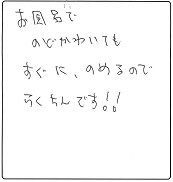 お図書で
のどがかわいても
すぐに、のめるので
らくちんです!!